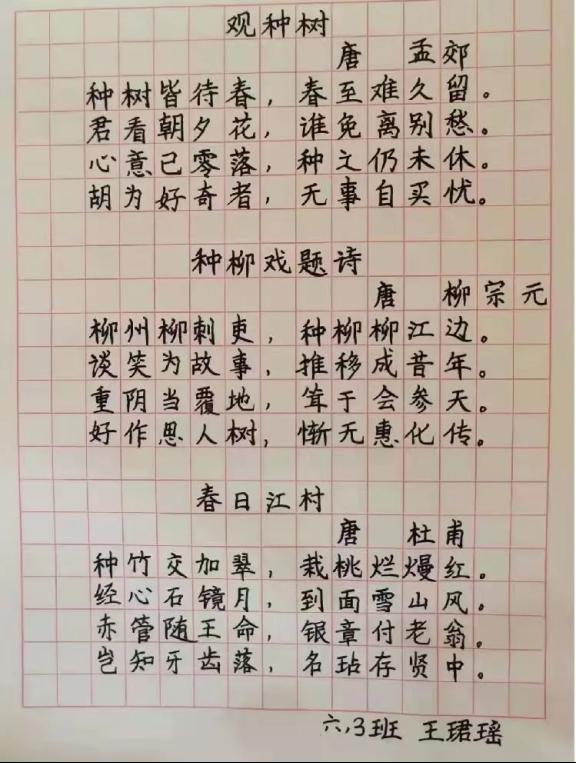 观种树
唐 孟郊
种树皆待春，春至难久留。
君看朝夕花，谁免离别愁。
心意已零落，种之仍未休。
胡为好奇者，无事自买忧。
种柳戏题诗
唐 柳宗元
柳州柳刺吏，种柳柳江边。
谈笑为故事，推移成昔年。
重阴当覆地，耸于会参天。
好作思人树，惭无惠化传。
春日江村
唐 杜甫
种竹交加翠，栽桃烂熳红。
经心石镜月，到面雪山风。
赤管随王命，银章付老翁。
岂知牙齿落，名玷存贤中。
六,3班 王珺瑶